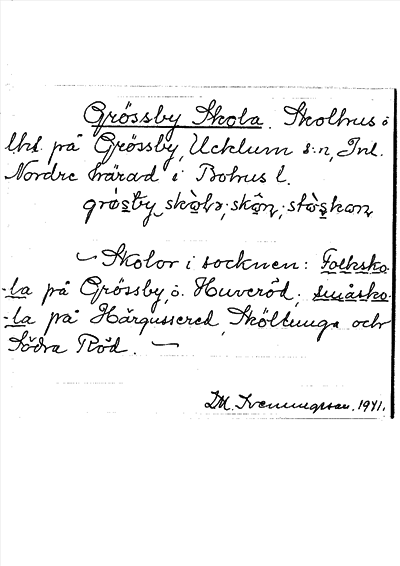 Grössby Skola. Skolhus å
lht på Grössby, Ucklum s:n, Inl.
Nordre härad i Bohus l.
skò̬lə; skô̬n;
– Skolor i socknen: Folksko-
-la på Grössby, o. Huveröd; småsko-
-la på Härgussered, Sköttunga och
Södra Röd. –
1941.